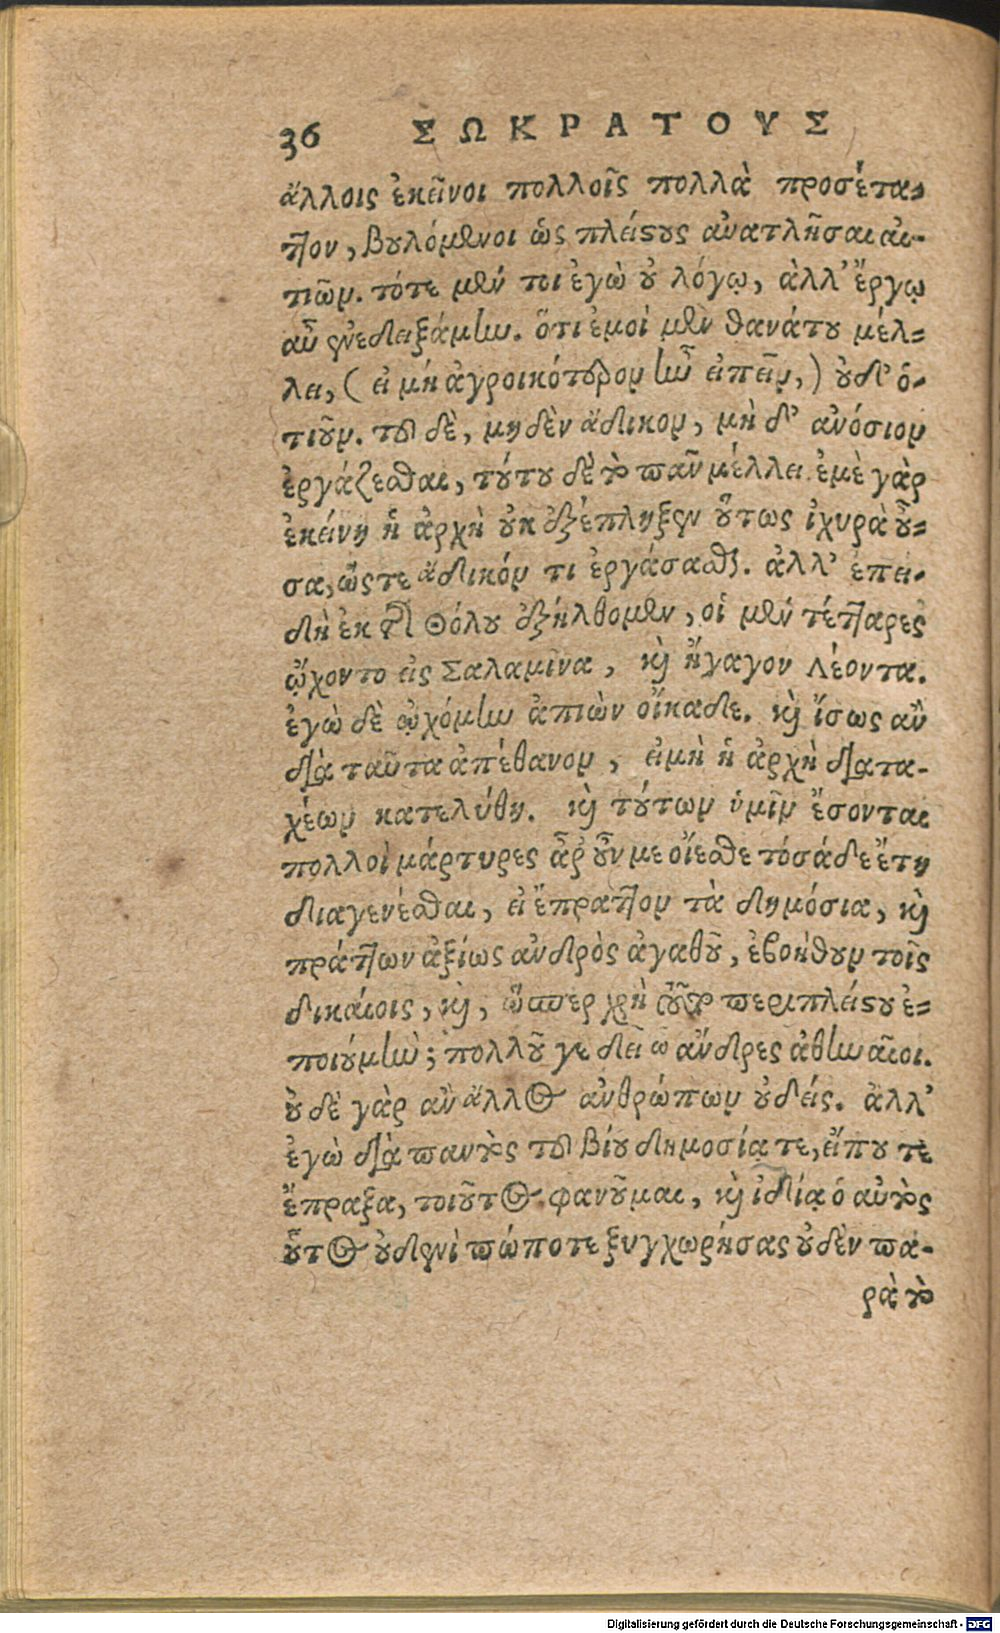 36 ΣΩΚΡΑΤΟΥΣ
ἄλλοις ἐκεῖνοι πολλοῖς πολλὰ προσέτα-
ττον, βουλόμενοι ὡς πλείστους ἀνατλῆσαι αἰ-
τιῶν. τότε μέν τοι ἐγὼ οὐ λόγῳ, ἀλλ' ἔργῳ
αὖ ἐνεδειξάμην. ὅτι ἐμοὶ μὲν θανάτου μέλ-
λει, (εἰ μὴ ἀγροικότερον ἦν εἰπεῖν,) οὐδ' ὁ-
τιοῦν. τοῦ δὲ, μηδὲν ἄδικον, μὴ δ' ἀνόσιον
ἐργάζεσθαι, τούτου δὲ τὸ πᾶν μέλλει. ἐμὲ γὰρ
ἐκείνη ἡ ἀρχὴ οὐκ ἐξέπληξεν οὕτως ἰχυρὰ οὖ-
σα, ὥστε ἄδικόν τι ἐργάσασθαι. ἀλλ' ἐπει-
δὴ ἐκ τῆς Θόλου ἐξήλθομεν, οἱ μὲν τέτταρες
ᾤχοντο εἰς Σαλαμῖνα, καὶ ἤγαγον Λέοντα.
ἐγὼ δὲ ᾠχόμην ἀπιὼν οἴκαδε. καὶ ἴσως ἂν
διὰ ταῦτα ἀπέθανον, εἰ μὴ ἡ ἀρχὴ διὰ τα-
χέων κατελύθη. καὶ τούτων ὑμῖν ἔσονται
πολλοὶ μάρτυρες ἆρ' οὖν με οἴεσθε τόσάδε ἔτη
διαγενέσθαι, εἰ ἔπραττον τὰ δημόσια, καὶ
πράττων ἀξίως ἀνδρὸς ἀγαθοῦ, ἐβοήθουν τοῖς
δικαίοις, καὶ, ὥσπερ χρὴ τοῦτο περιπλείστου ἐ-
ποιούμην; πολλοῦ γε δεῖ ὦ ἄνδρες ἀθηναῖοι.
οὐδὲ γὰρ ἂν ἄλλος ἀνθρώπων οὐδείς. ἀλλ'
ἐγὼ διὰ παντὸς τοῦ βίου δημοσίᾳ τε, εἴπου τε
ἔπραξα, τοιοῦτος φανοῦμαι, καὶ ἰδίᾳ ὁ αὐτὸς
οὗτος οὐδενὶ πώποτε ξυγχωρήσας οὐδὲν πα-
ρὰ τὸ
Digitalisierung gefördert durch die Deutsche Forschungsgemeinschaft - DFG